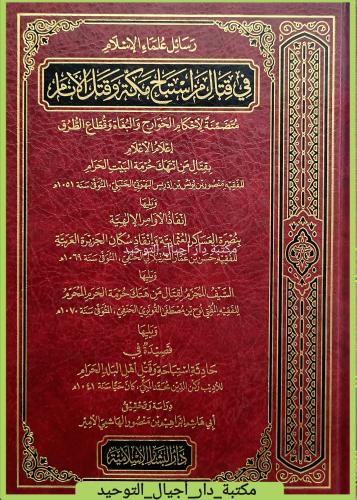 رسائل علماء الإسلام
في قتال من استباح مكة وقتل الأنام
متضمنة لأحكام الخوارج والبغاة وقطاع الطرق
إعلام الأعلام
بقتال من انتهك حرمة البيت الحرام
للفقيه منصور بن يونس بن إدريس البهوتي الحنبلي، المتوفى سنة ١٠٥١هـ
ويليها
إنفاذ الأوامر الإلهية
بنصرة العساكر العثمانية وإنقاذ سكان الجزيرة العربية
مكتبة دار أجيال التوحيد
للفقيه حسن بن عمار الحنفي، المتوفى سنة ١٠٦٩هـ
ويليها
السيف المجزم لقتال من هتك حرمة الحرم المحرم
للفقيه المفتي نوح بن مصطفى القونوي الحنفي، المتوفى سنة ١٠٧٠هـ
ويليها
قصيدة في
حادثة استباحة وقتل أهل البلد الحرام
للأديب زين الدين محمد المكي، كان حيا سنة ١٠٤١هـ
دراسة وتحقيق
أبي هاشم إبراهيم بن منصور الهاشمي الأمير
مكتبة_دار_أجيال_التوحيد